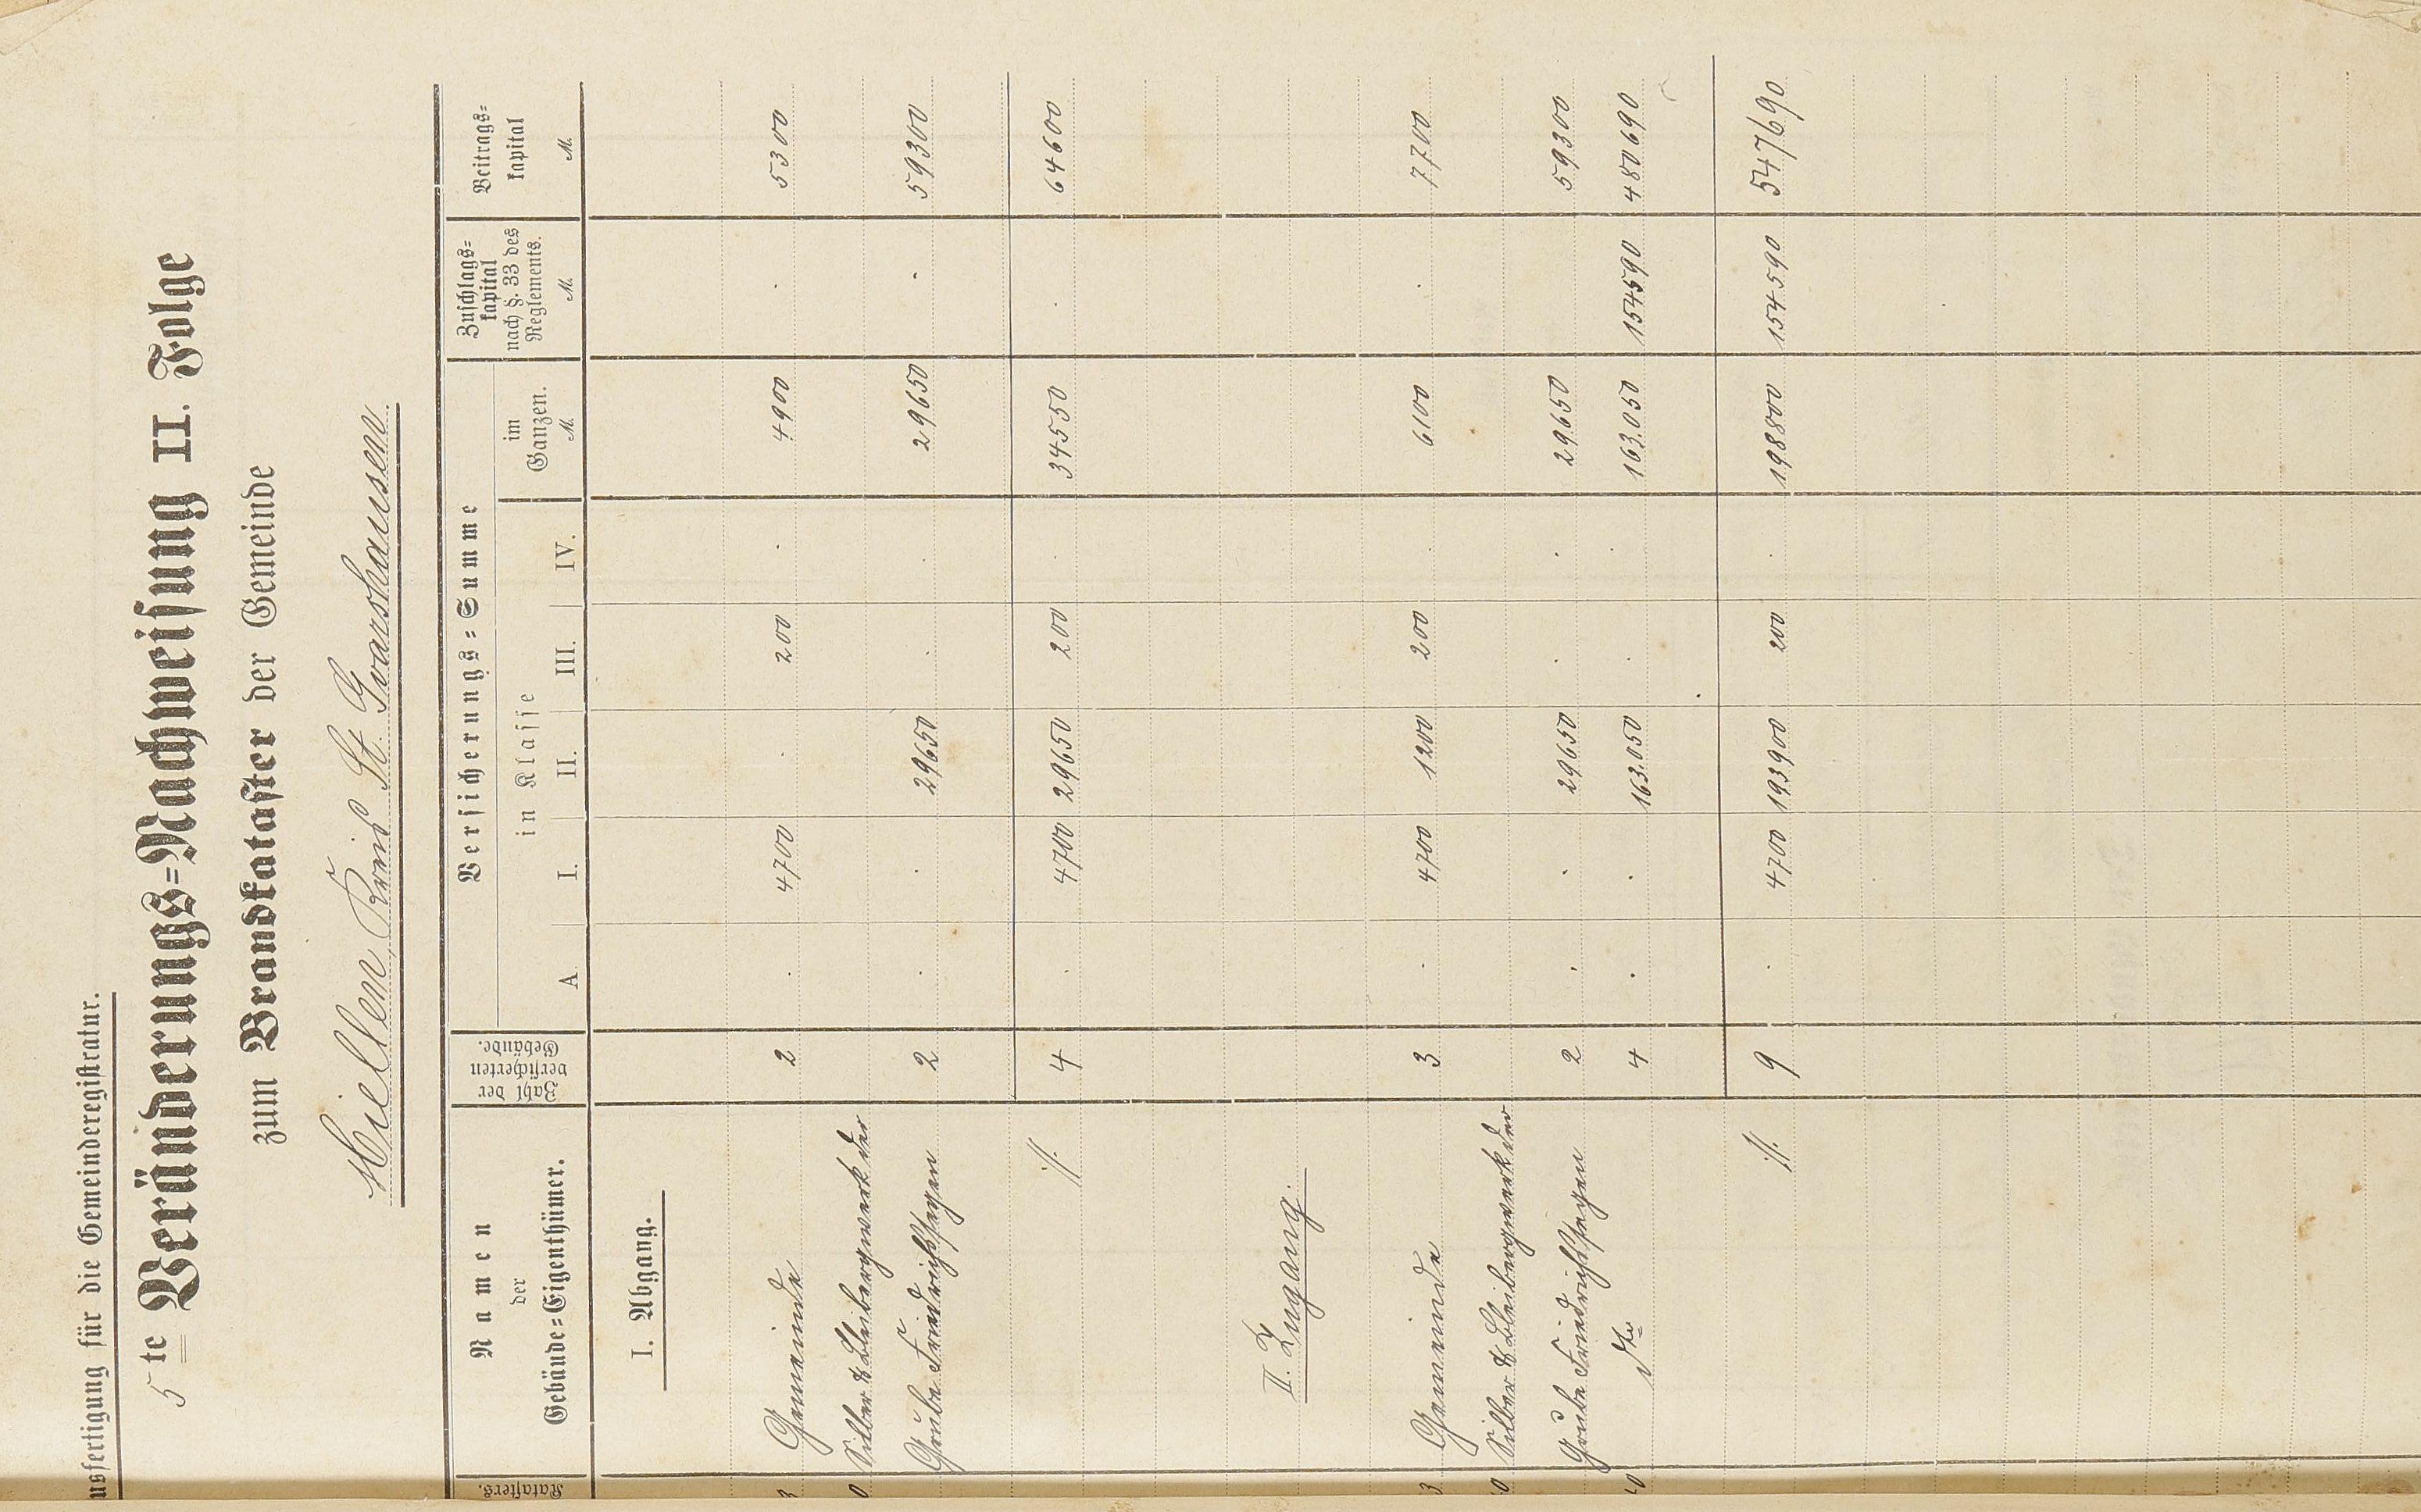 usfertigung für die Gemeinderegistratur.
5te Veränderungs=Nachweisung II. Folge
zum Brandkataster der Gemeinde
Miellen, Kreis St. Goarshausen
Katasters.
Namen
der
Gebäude=Eigenthümer.
Zahl der
versicherten
Gebäude.
Versicherungs=Summe
in Klasse
A I. II. III. IV.
im
Ganzen.
M.
Zuschlags=
kapital
nach §. 33 des
Reglements.
M.
Beitrags=
kapital
M.
I. Abgang.
3 Gemeinde 2 . 4700 . 200 . 4900 . 5300
0 Silber & Bleibergwerk der
Grube Friedrichssegen 2 . . 29650 . . 29650 . 59300
//. 4 . 4700 29650 200 . 34550 . 64600
II. Zugang.
3 Gemeinde 3 . 4700 1200 200 . 6100 . 7700
0 Silber & Bleibergwerk der
Grube Friedrichssegen 2 . . 29650 . . 29650 59300
0 dto 4 . . 163.050 . . 163.050 154590 480690
//. 9 . 4700 193900 200 . 198800 154590 547690